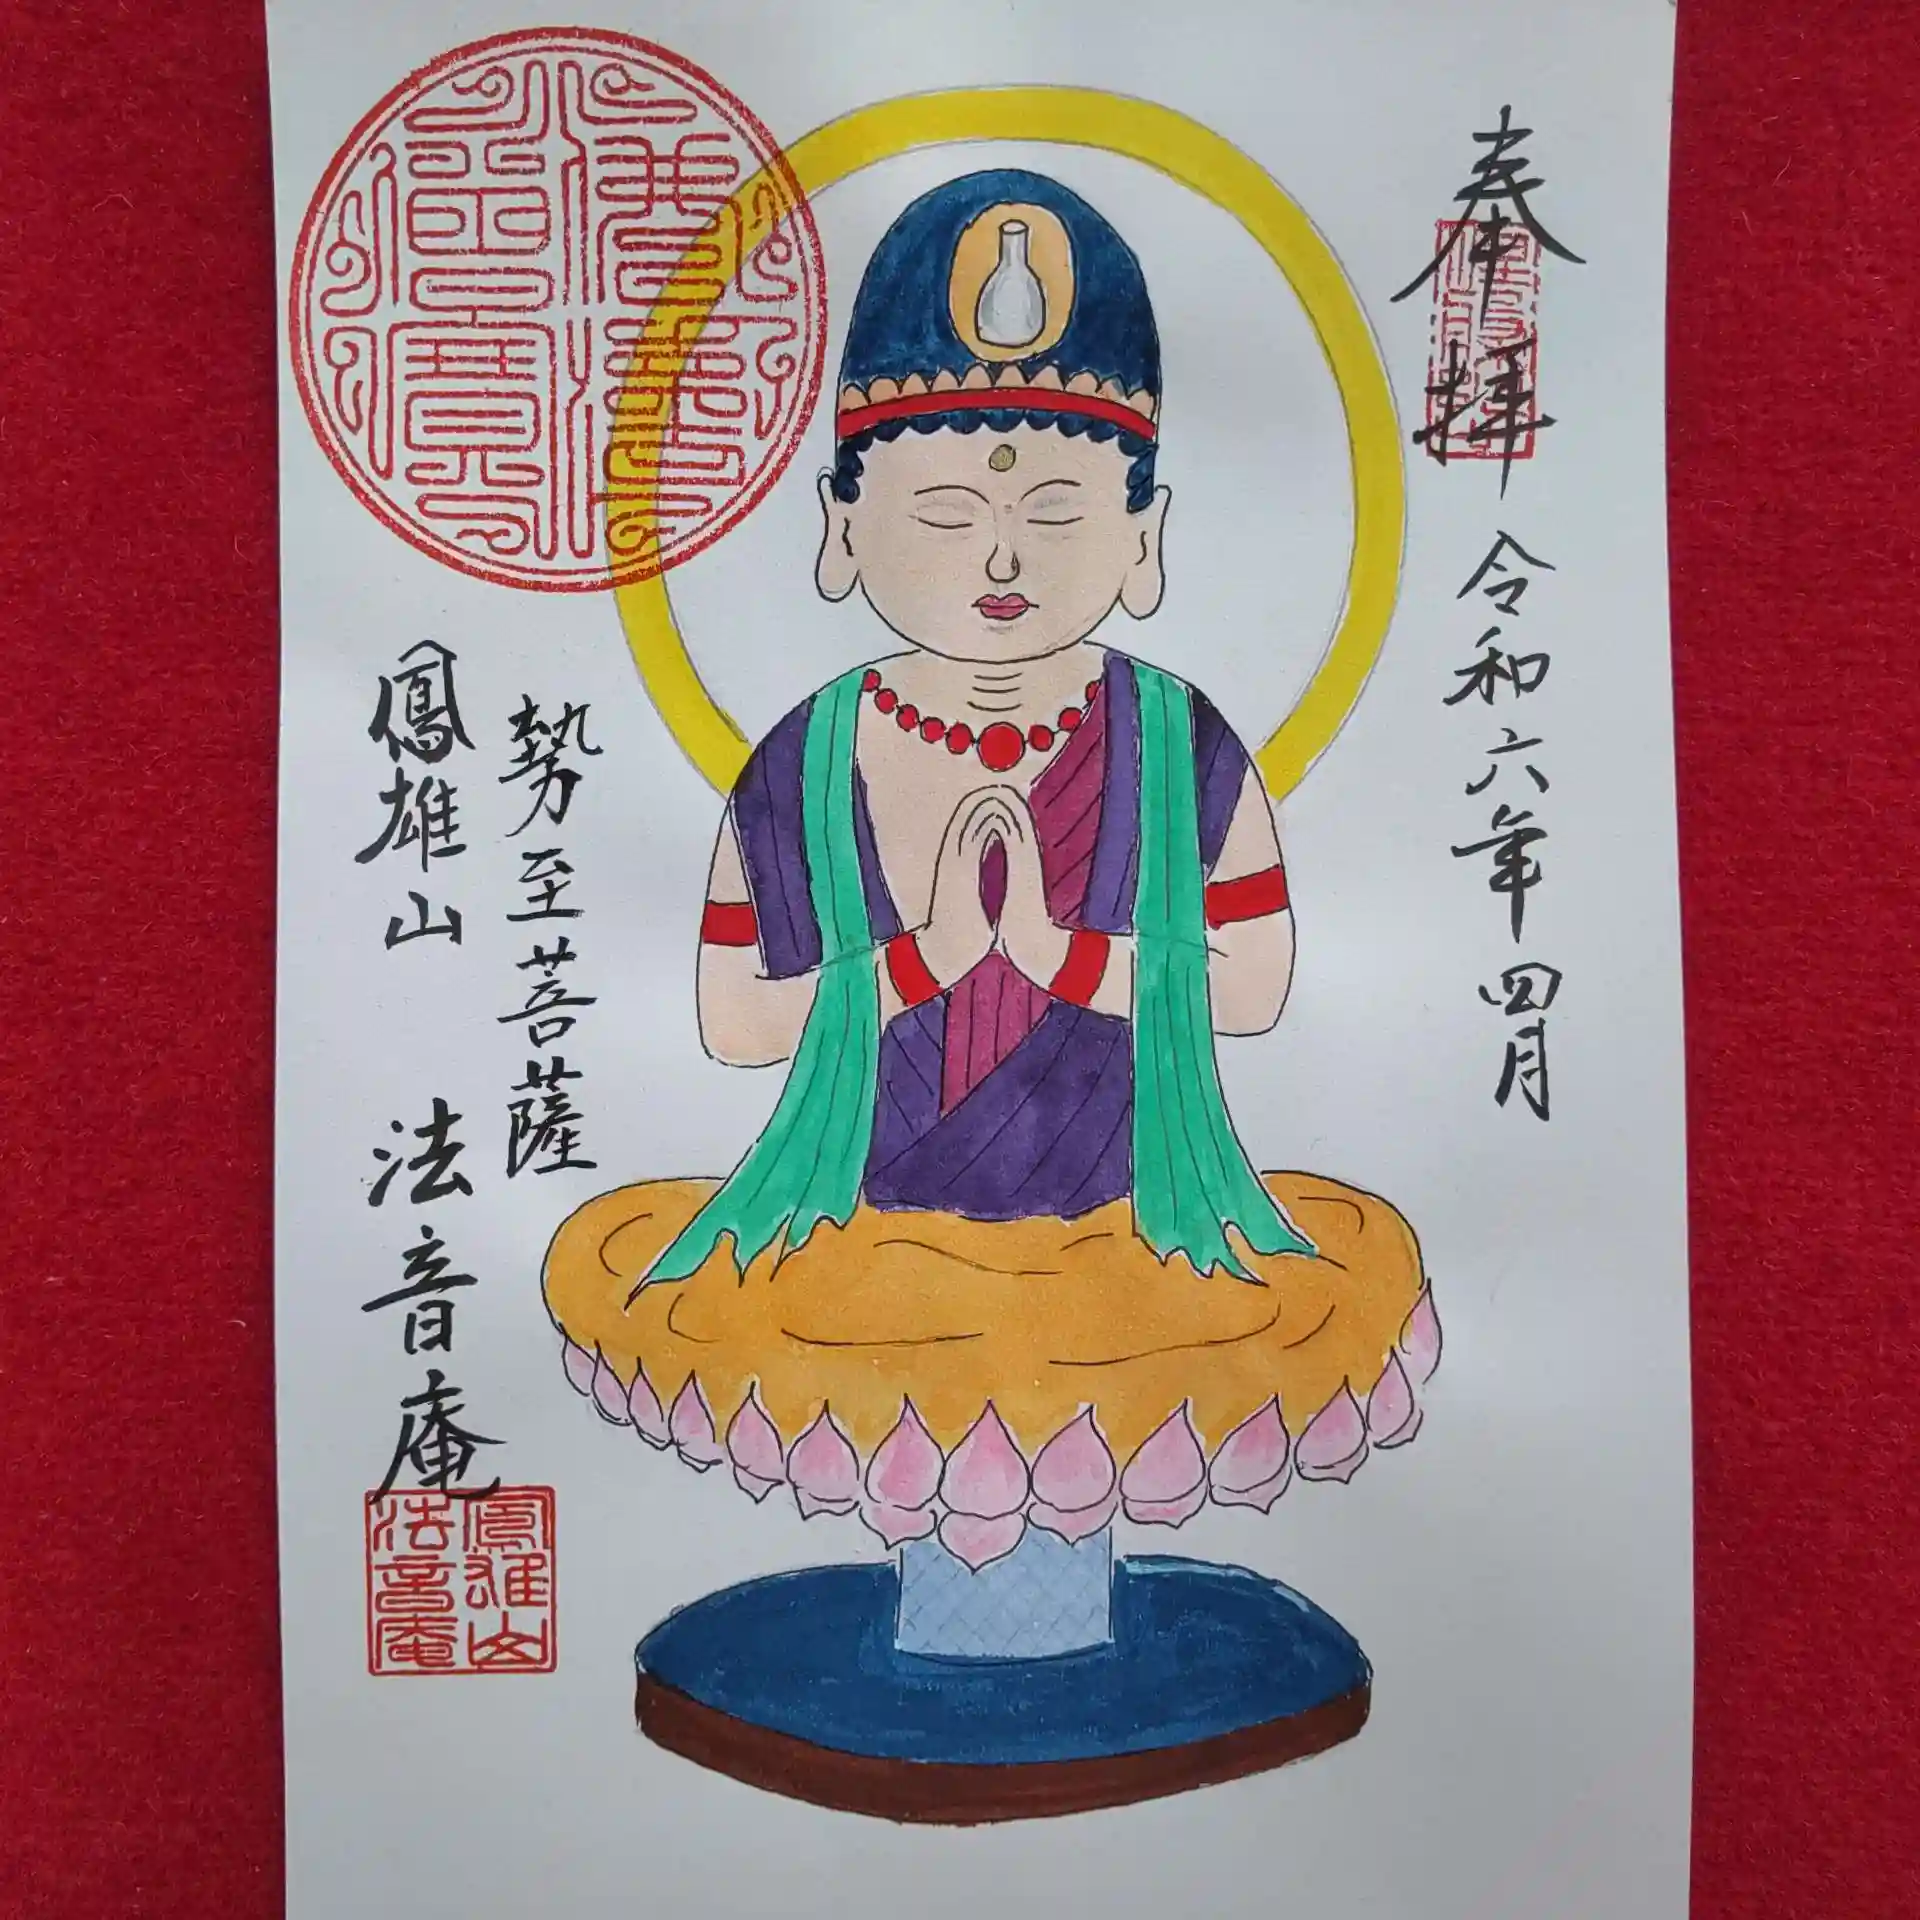 奉拝
令和六年四月
勢至菩薩
鳳雄山 法音庵
佛法僧寶
鳳雄山
法音庵